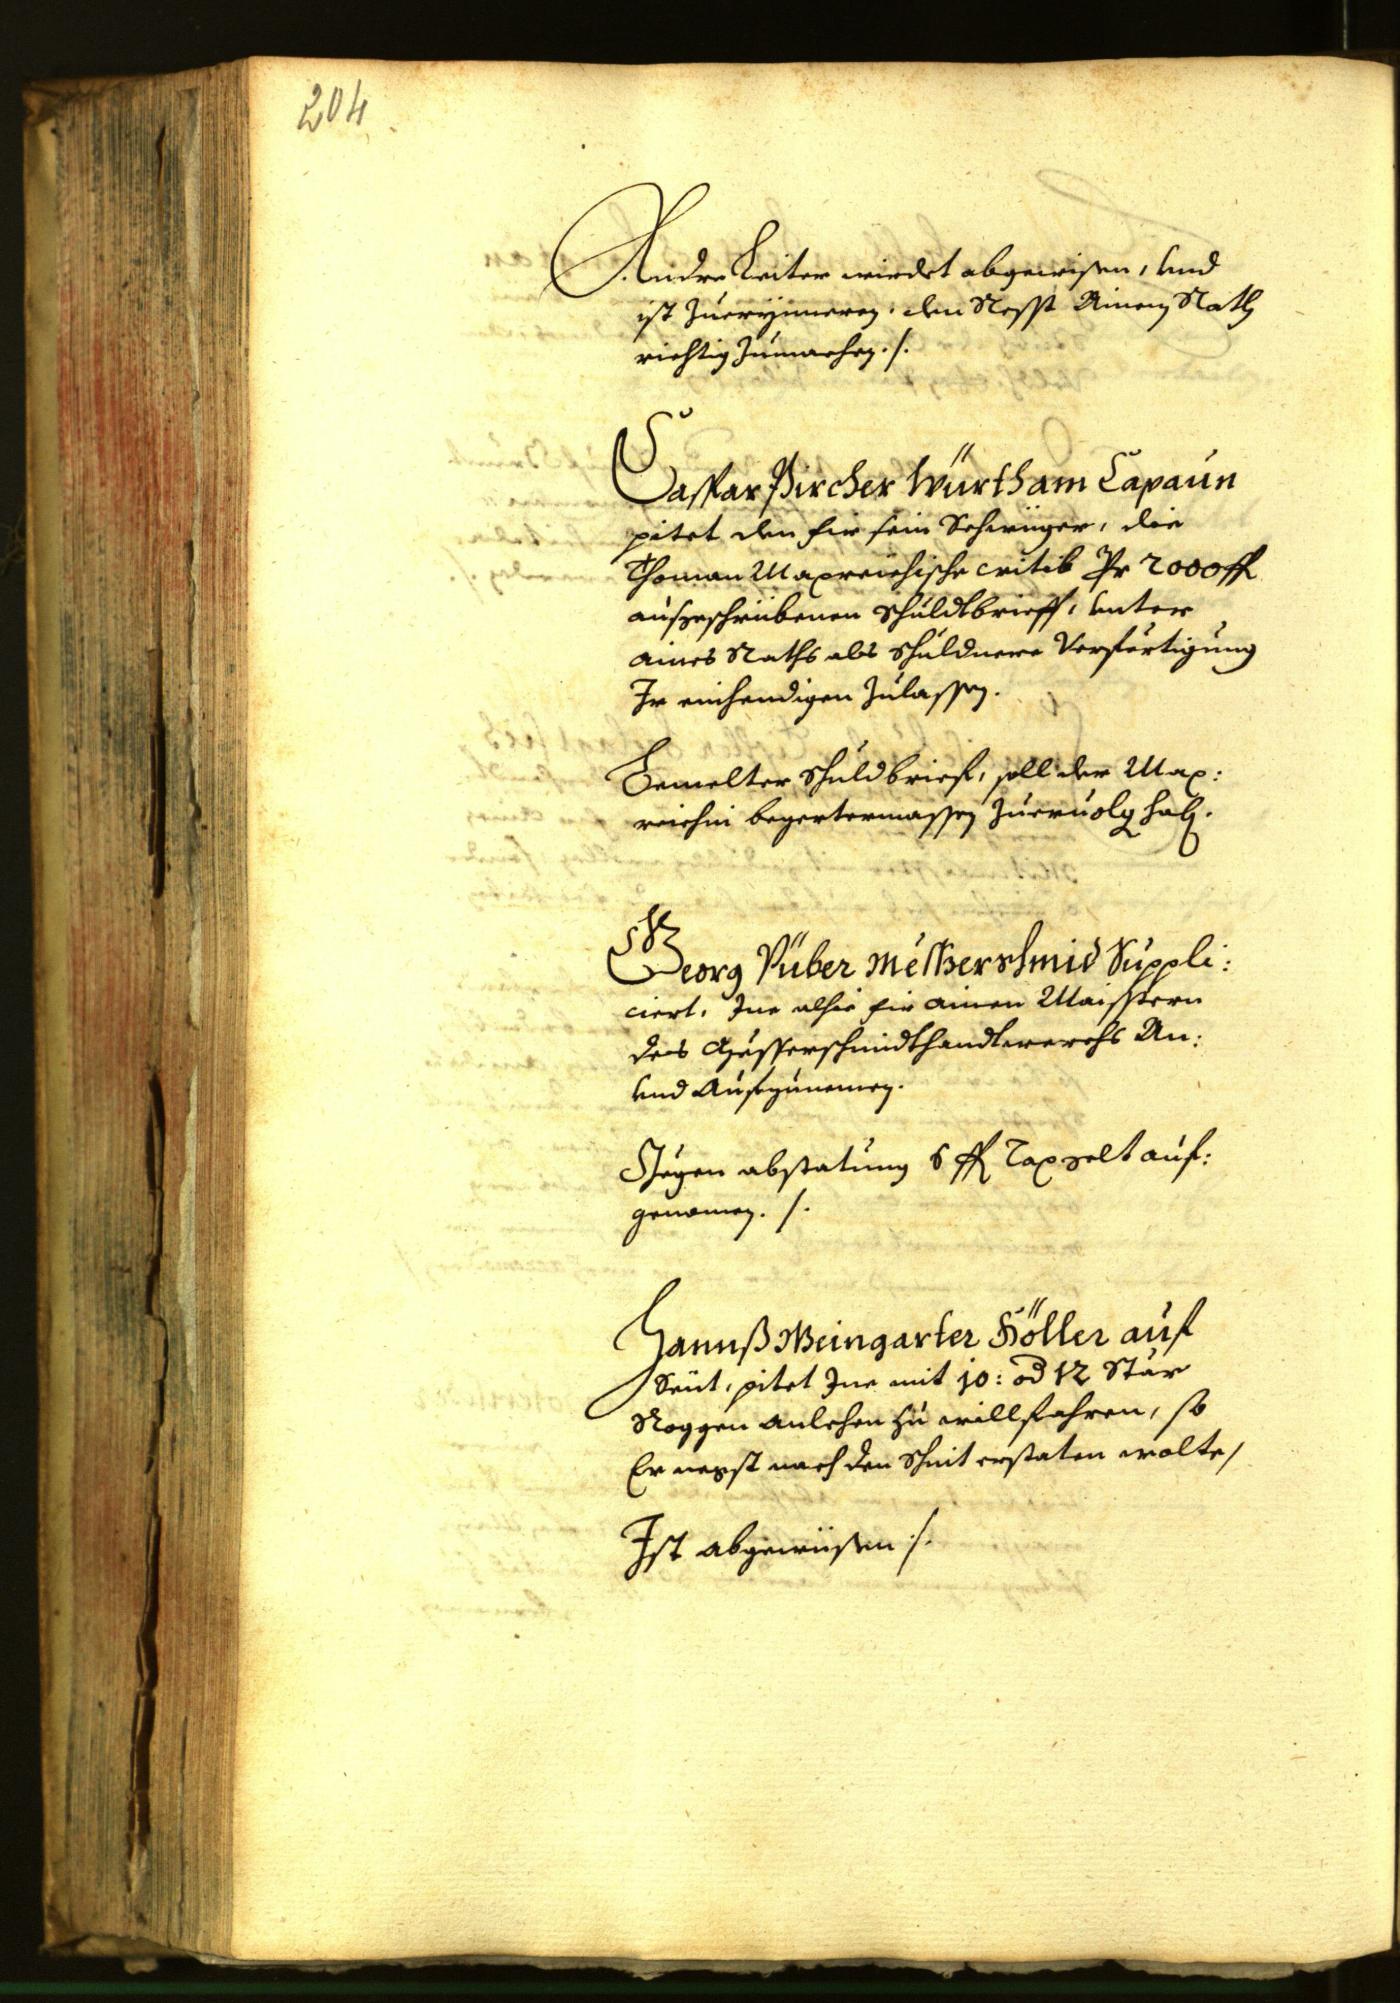 204
Andre Reiter wirdet abgewisen, und
ist zuerynnern, den Resst Ainem Rath
richtig zumachen ./.
Casspar Pircher Würth am Capaun
pitet den fir sein Schwiger, die
Thoman Mayreichische wittib Pr 2000 fl
aufgeschribenen schuldtbrieff, unter
aines Raths als schuldnere Verfertigung
Ir einhendigen zulassen.
Gemelter schuldbrief, soll der May:
reichin begertermassen zuervolg hab.
Georg Püber Messerschmid Suppli:
ciert, Ine alhie fir ainen Maisstern
des Messerschmidthandtwerchs An:
und Aufzunemen.
Gegen abstatung 6 fl Taxgelt auf:
genomen. ./.
Hannß Weingarter Höller auf
Seüt, pitet Ine mit 10: od 12 Stär
Roggen anlehen zu willfahren, so
Er negst nach den Schnit erstaten wolte,
Ist abgewüsen ./.